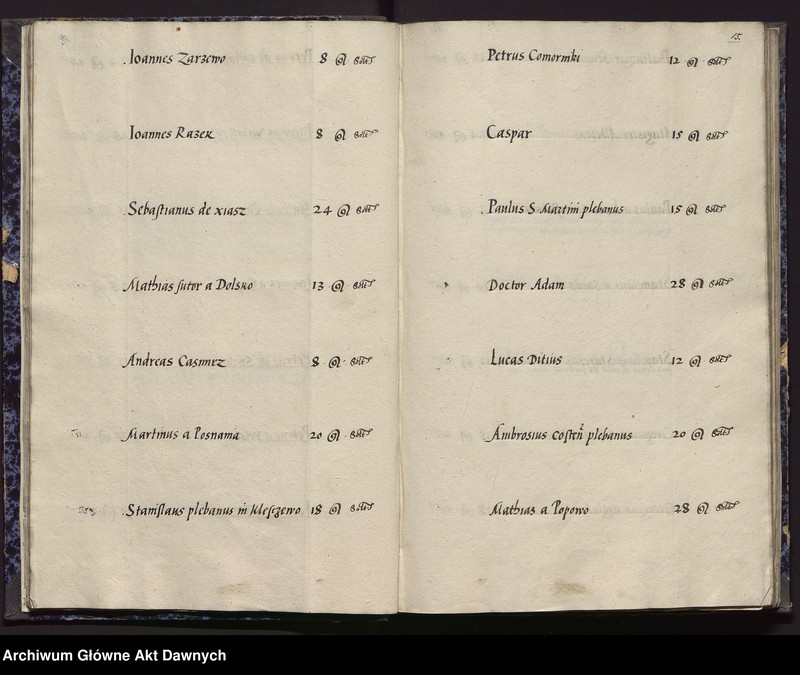 Ioannes Zarzewo 8
Ioannes Razek 8
Sebastianus de xiasz 24
Mathias sutor a Dolsko 13
Andreas Casmirz 8
Martinus a Posnania 20
Stanislaus plebanus in Kleszzewo 18
15.
Petrus Comorniki 12
Caspar 15
Paulus S Martini plebanus 15
Doctor Adam 28
Lucas Ditius 12
Ambrosius Costen̄ plebanus 20
Mathias a Popowo 28
Archiwum Główne Akt Dawnych